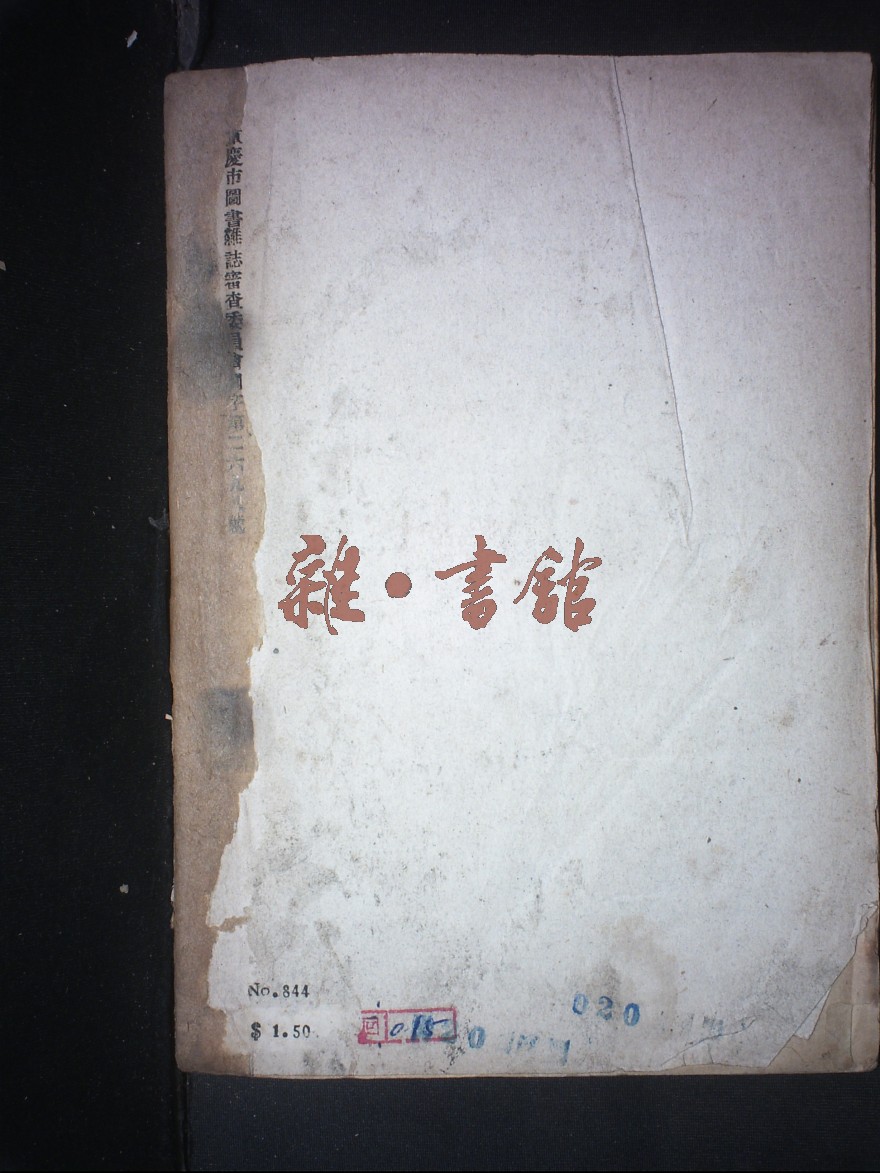 慶市圖書雜誌審查委員會圖字第二六九號
雜·書館
No.844
$ 1.50
020
回 0.15
0